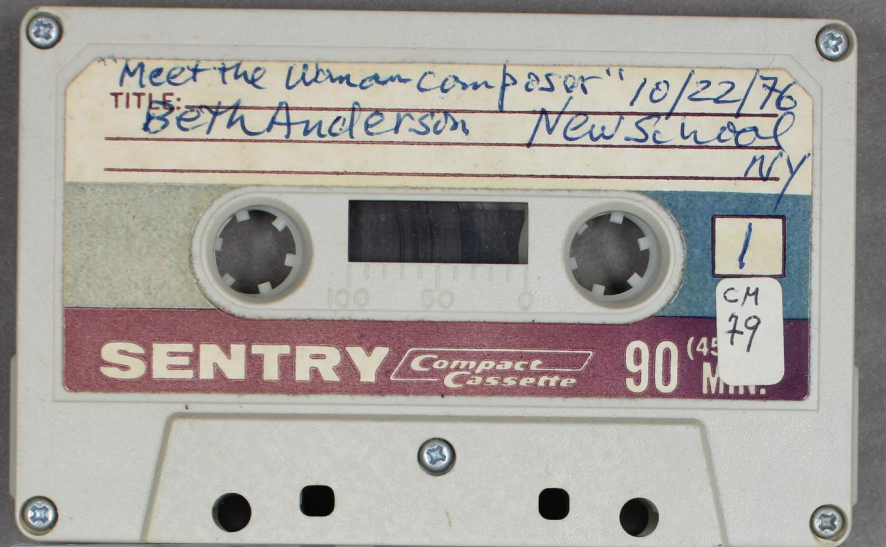 "Meet the Woman composer" 10/22/76
TITLE:
Beth Anderson New School
NY
1
100 50 0
CM
79
SENTRY Compact Cassette 90 (45
MIN.